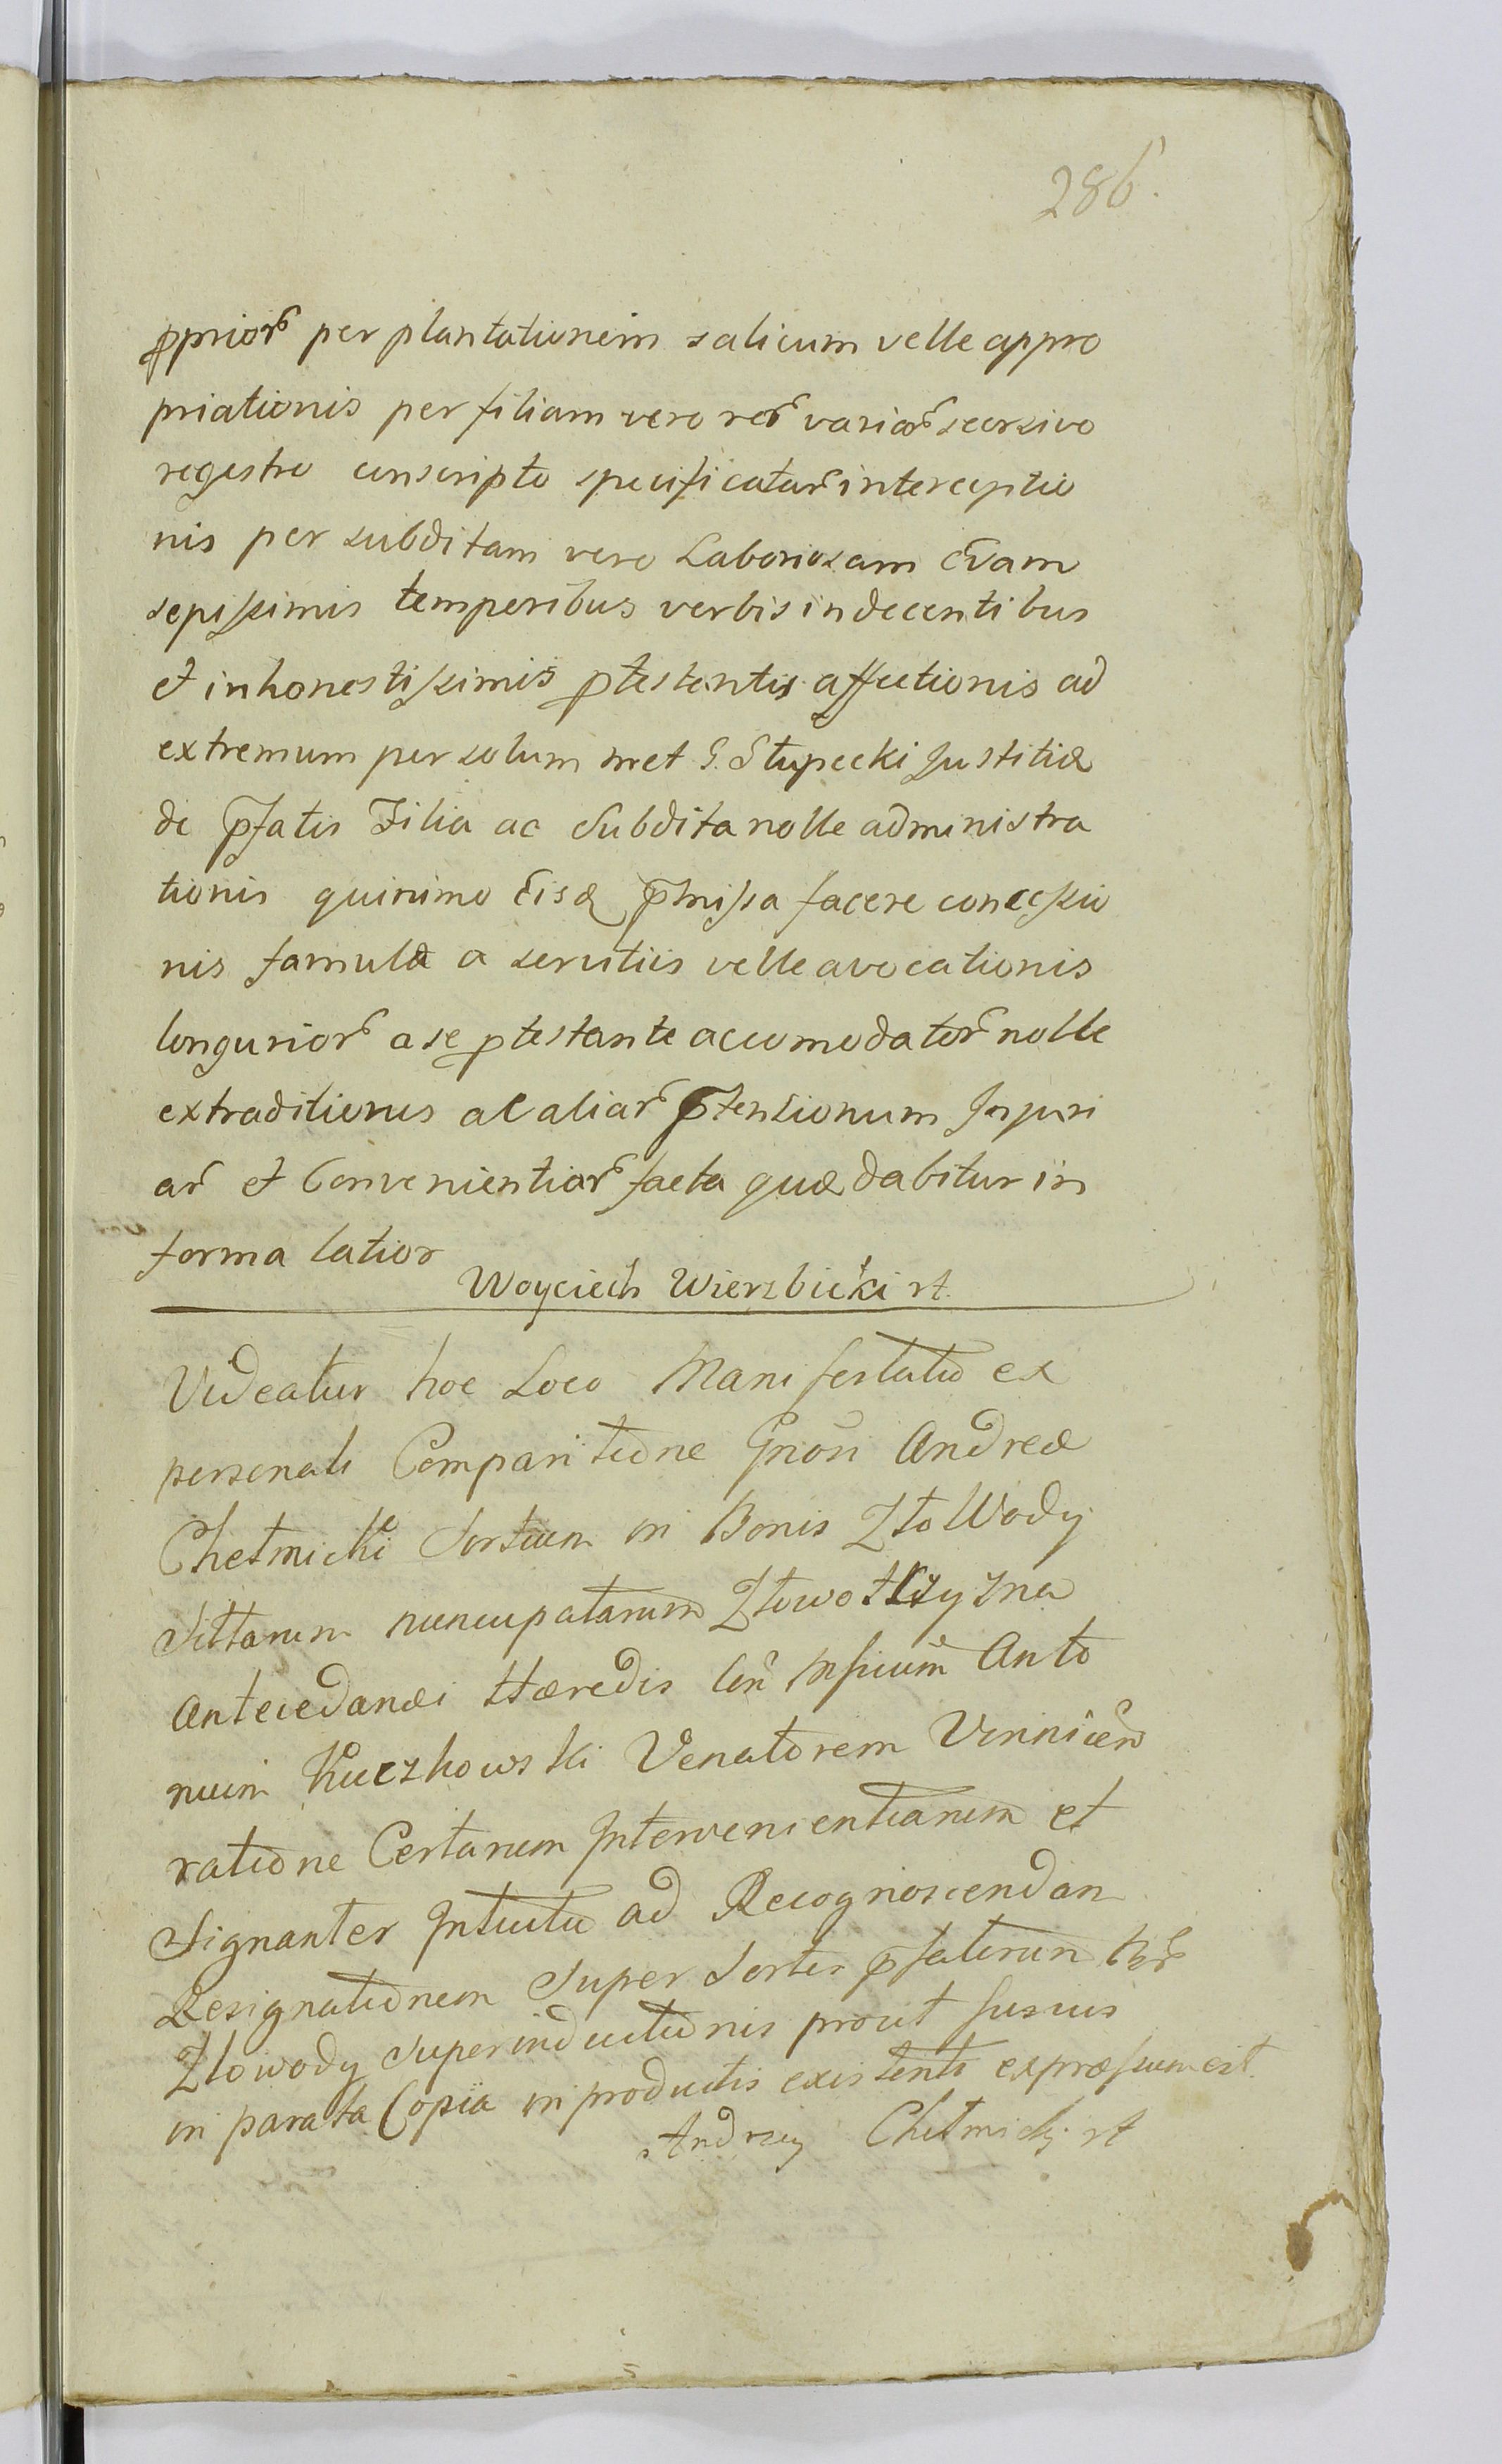 286.
ppriors per plantationem salicum velle appro
priationis per filiam vero rer variar seorsivo
regestro conscripto specificatar interceptio
nis per subditam vero Laboriosam Evam
sepissimis temporibus verbis indecentibus
et inhonestissimis ptestantis affectionis ad
extremum per solum met G. Słupecki Justitiæ
de pfatis Filia ac Subdita nolle administra
tionis quinimo Eisd pmissa facere concessio
nis famulæ a servitiis velle avocationis
longurior a se ptestante accomodator nolle
extraditionis ac aliar ptensionum Injuri
ar et Convenientiar facta quæ dabitur in
forma latior
Woyciech Wierzbicki rt.
Videatur hoc Loco Manifestatio ex
personali Comparitione Gnosi Andreæ
Chełmicki Sortium in Bonis Zło Wody
Sittarum nuncupatarum Złowotczyzna
Antecedanei Hæredis Con Msicum Anto
nium Kuczkowski Venatorem Vinnicen
ratione Certarum Intervenientiarum et
Signanter Intuitu ad Recognoscendam
Resignationem Super Sortes pfatorum Bnr
Złowody Superinductionis prout fusius
in parata Copia in productis existenti expræssum est.
Andrzey Chełmicki rt